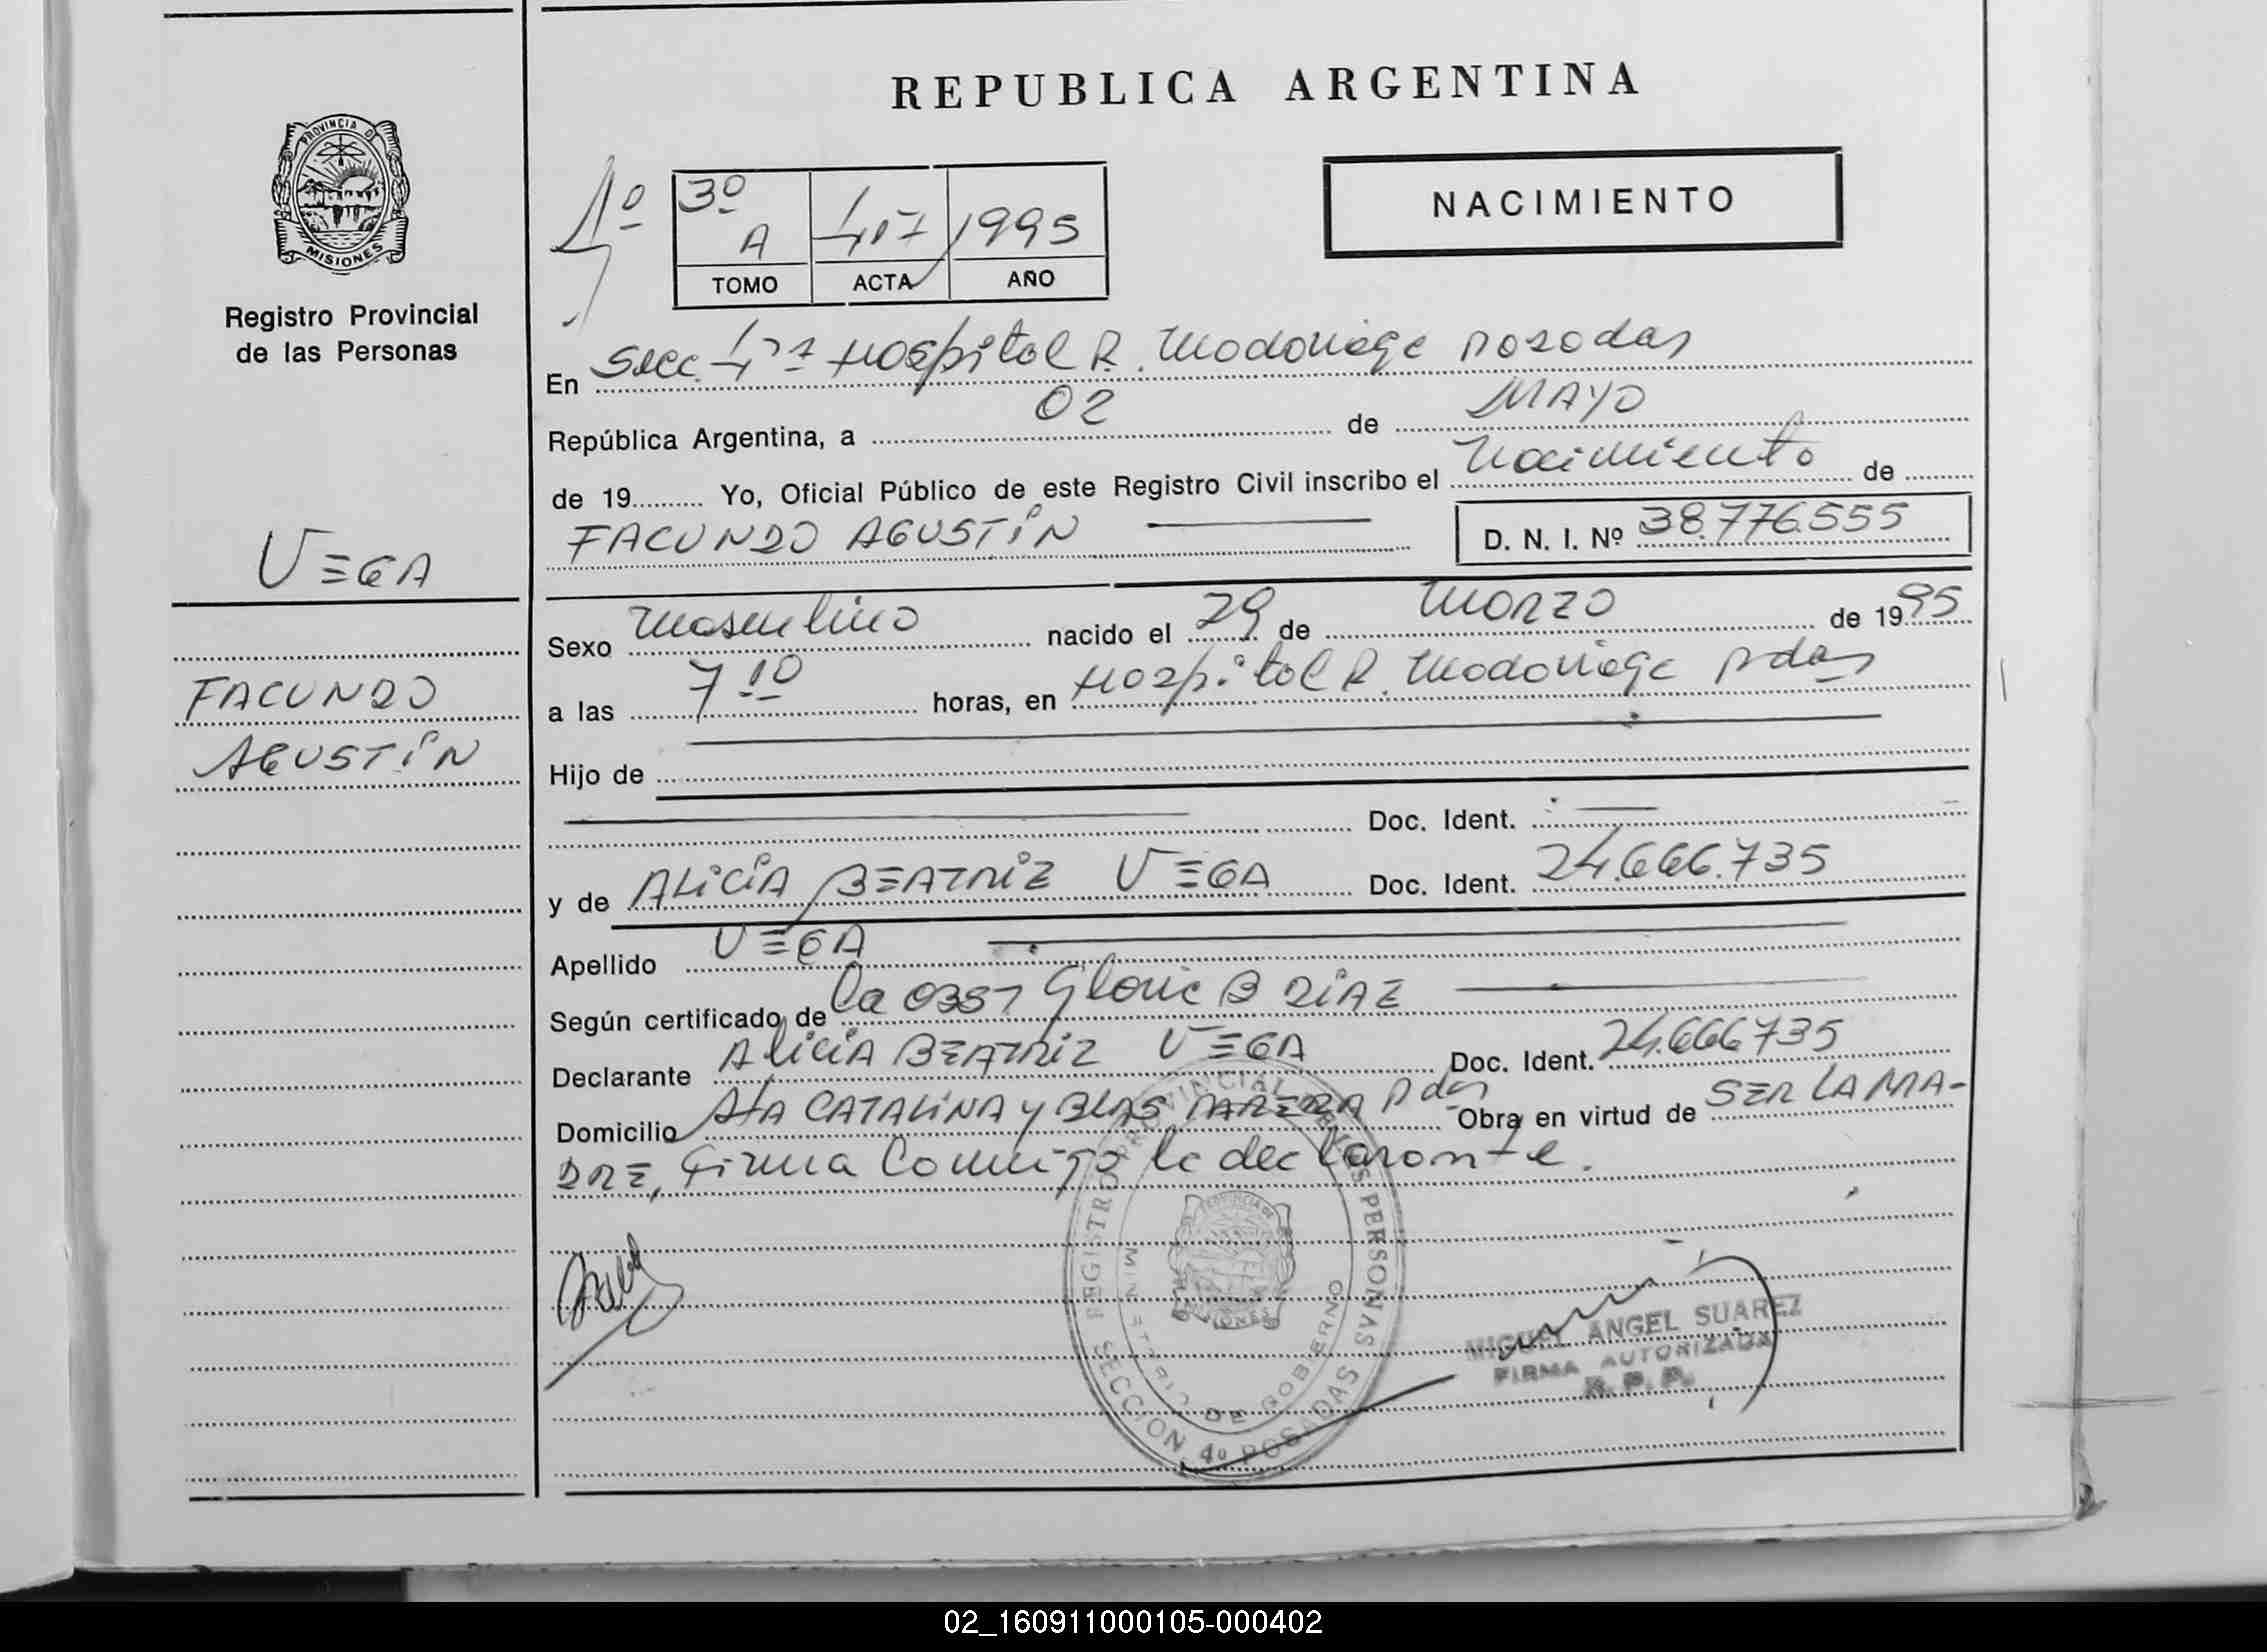 REPUBLICA ARGENTINA
PROVINCIA D
MISIONES
4º
3º
A
407
1995
TOMO
ACTA
AÑO
NACIMIENTO
Registro Provincial
de las Personas
En Secc. 4ta Hospital R. Madariaga Posadas
República Argentina, a 02 de MAYO
de 19 Yo, Oficial Público de este Registro Civil inscribo el Nacimiento de
FACUNDO AGUSTIN
D. N. I. Nº 38.776.555
VEGA
FACUNDO
AGUSTIN
Sexo masculino nacido el 29 de Marzo de 1995
a las 7 10 horas, en Hospital R. Madariaga Pdas
Hijo de
Doc. Ident.
y de ALICIA BEATRIZ VEGA Doc. Ident. 24.666.735
Apellido VEGA
Según certificado de la OBST Gloria B DIAZ
Declarante ALICIA BEATRIZ VEGA Doc. Ident. 24.666735
Domicilio Sta CATALINA y BLAS PARERA Pdas Obra en virtud de SER LA MA-
DRE, Firma Conmigo la declarante.
REGISTRO PROVINCIAL PERSONAS
MINISTERIO DE GOBIERNO
SECCION 4º POSADAS
MIGUEL ANGEL SUAREZ
FIRMA AUTORIZADA
R. P. P.
02_160911000105-000402